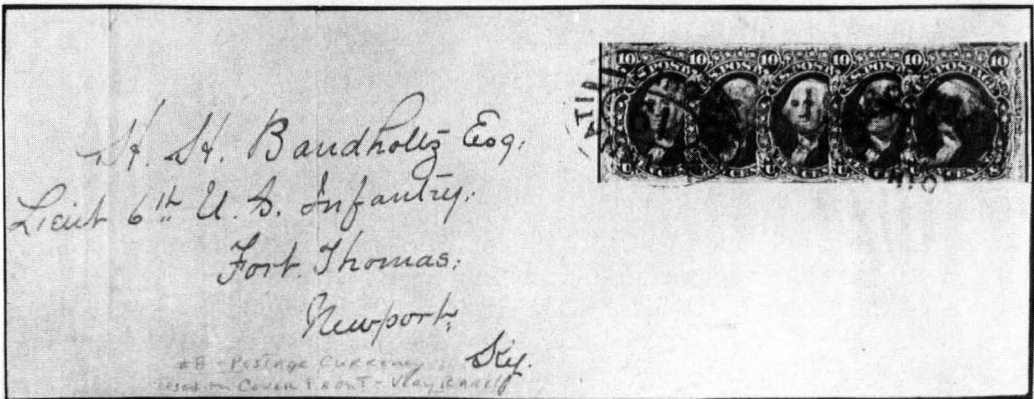 10 10 10 10 10
H. H. Bandholtz Esq.
Lieut 6th U. S. Infantry.
Fort. Thomas.
Newport,
Ky.
#8 - Postage Currency
used on Cover Front - Very Rare